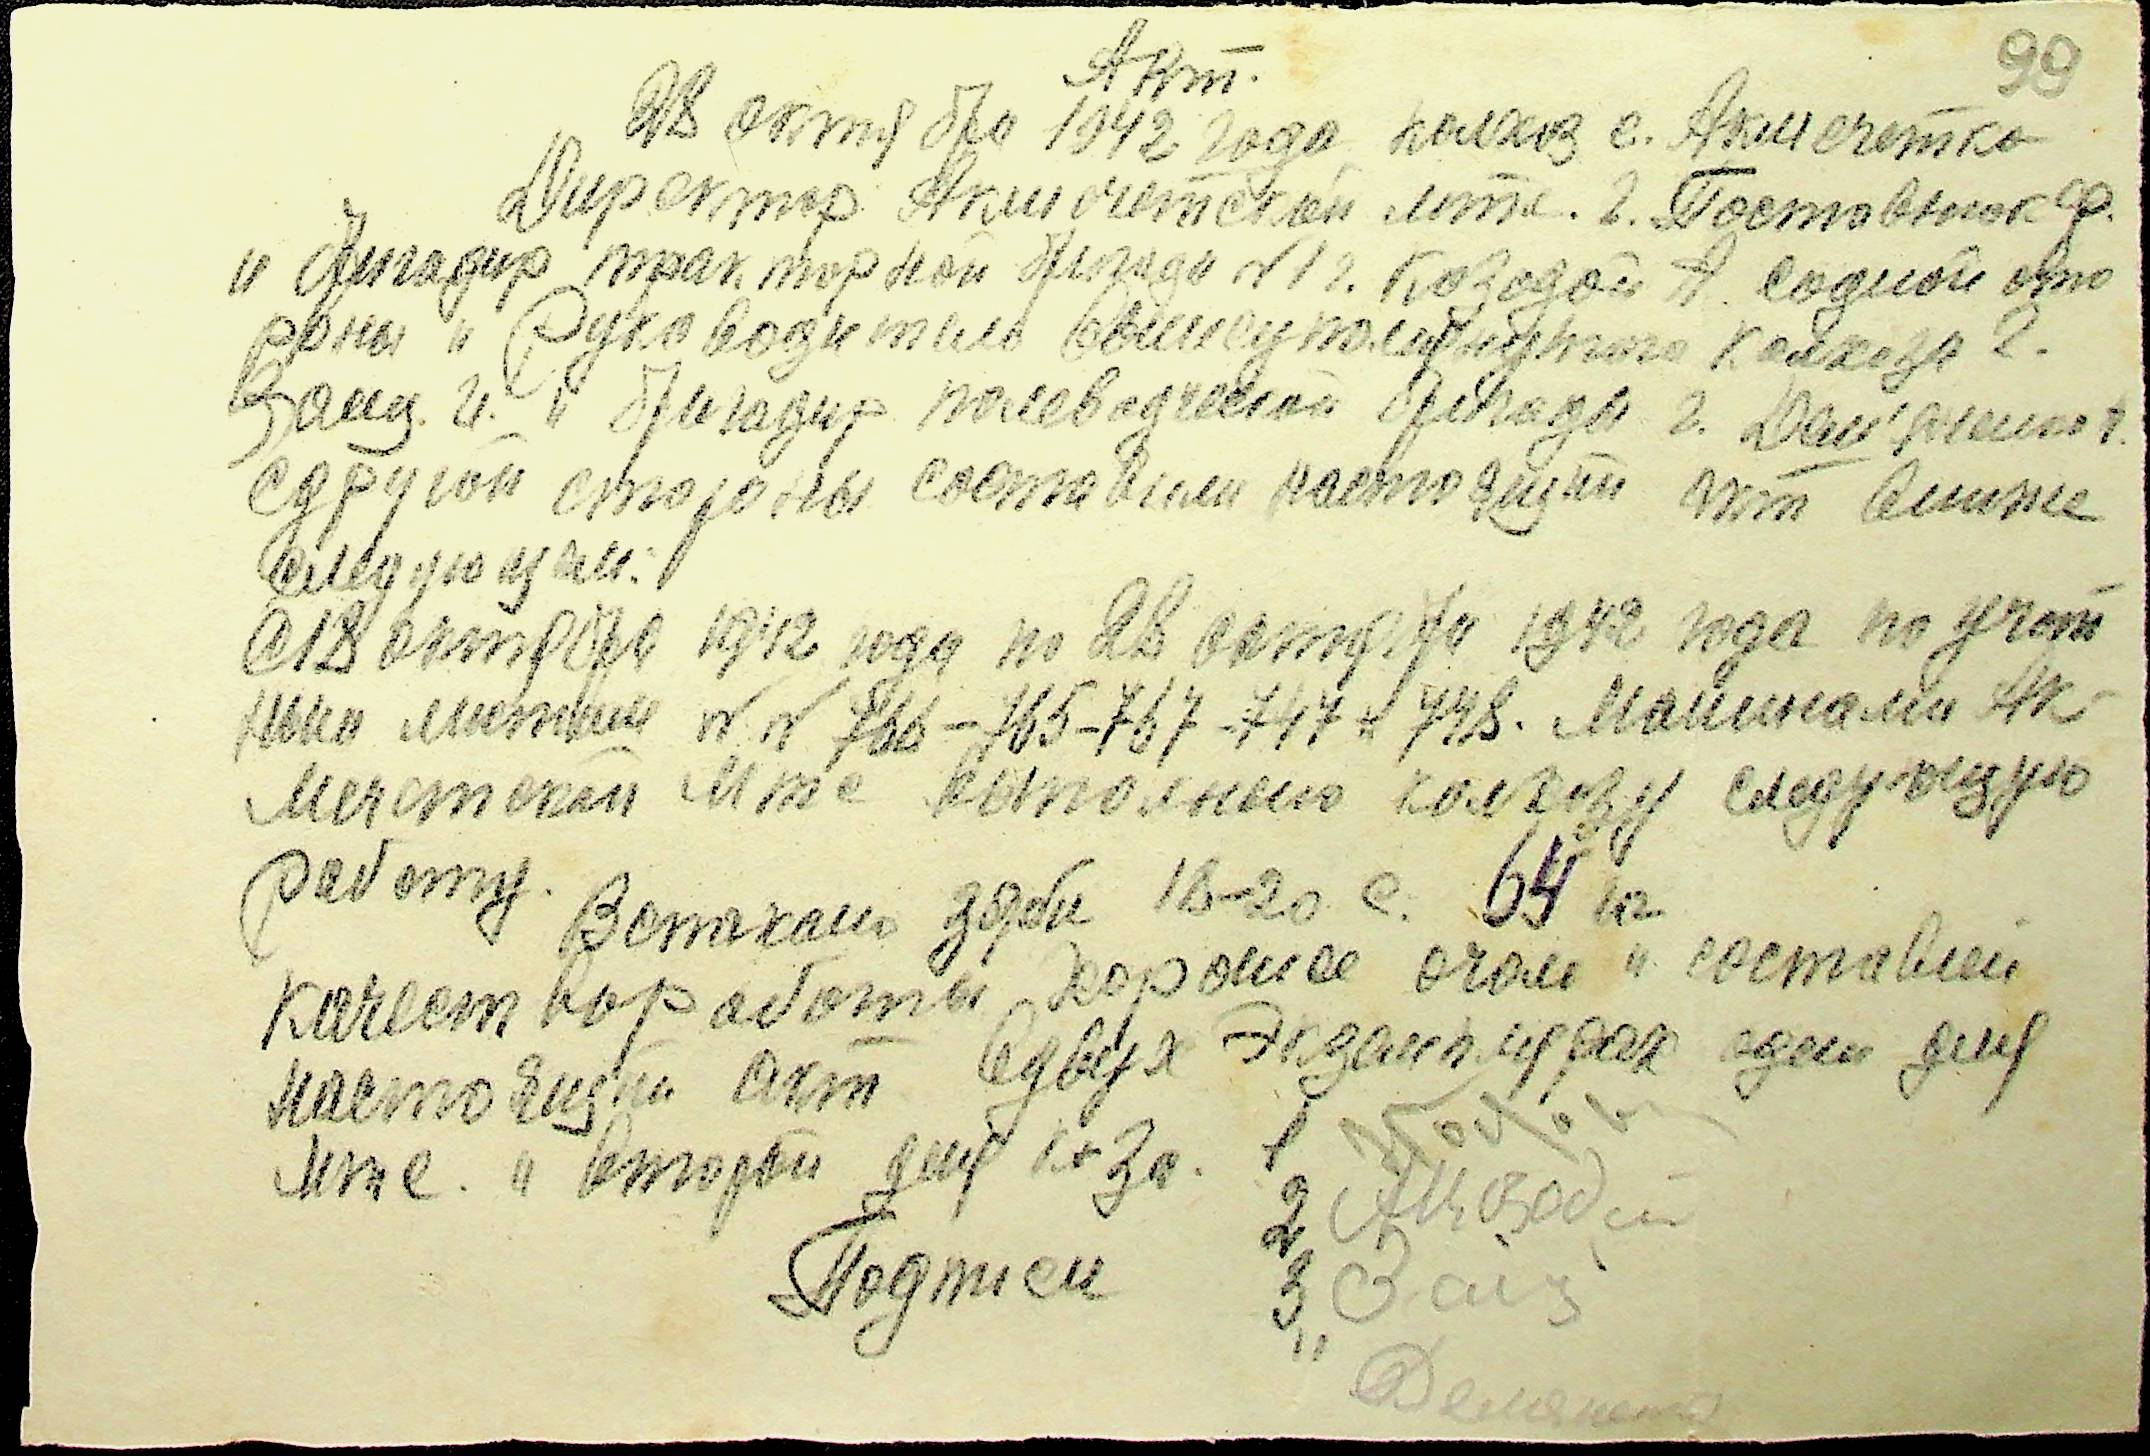 99
Акт.
28 октября 1942 года колхоз с. Акмечетка
Директор Акмечетской мтс. г. Поставнюк Ф.
и бригадир тракторной бригады №1 г. Козодой А. содной сто
роны и Руководитель колхоза г.
Заиц. и бригадир полеводческой бригады г. Демяненко
сдругой стороны составили настоящий акт вниже
следующем:
С 18 октября 1942 года по 28 октября 1942 года по учот
ным №№ 766-765-767-747 и 748. Машинами Ак-
мечетской мтс выполнено колхозу следующую
работу.
Вспахано зяби 18-20 с. 64 га
качествоработы хорошее о чом и составлен
настоящий акт вдвух Экземплярах один для
мтс. и второй для к-за.
Подписи
1
2 АКозодой
3 Заиц
" Демяненко